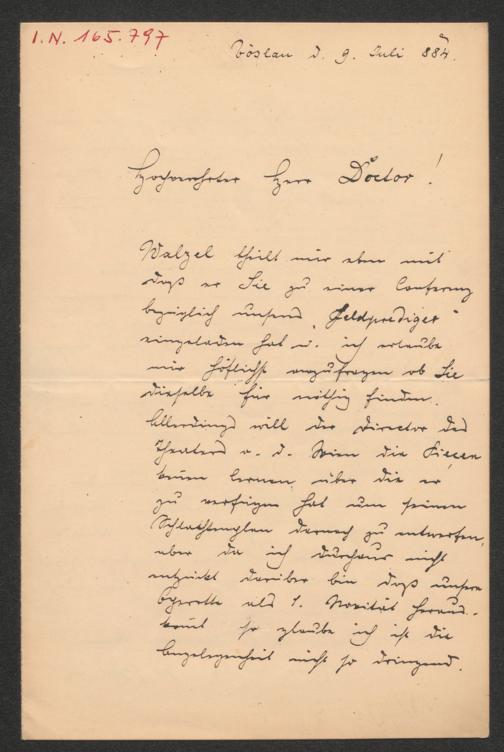 I.N. 165.797
Vöslau d. 9. Juli 884.
Hochverehrter Herr Doctor!
Walzel theilt mir eben mit
daß er Sie zu einer Conferenz
bezüglich unseres „Feldprediger"
eingeladen hat u. ich erlaube
mir höflichst anzufragen ob Sie
dieselbe für nöthig finden.
Allerdings will der Director des
Theaters a. d. Wien die Piecen
kennen lernen über die er
zu verfügen hat um seinen
Schlachtenplan darnach zu entwerfen,
aber da ich durchaus nicht
entzückt darüber bin daß unsere
Operette als 1. Novität heraus-
kommt so glaube ich ist die
Angelegenheit nicht so dringend.